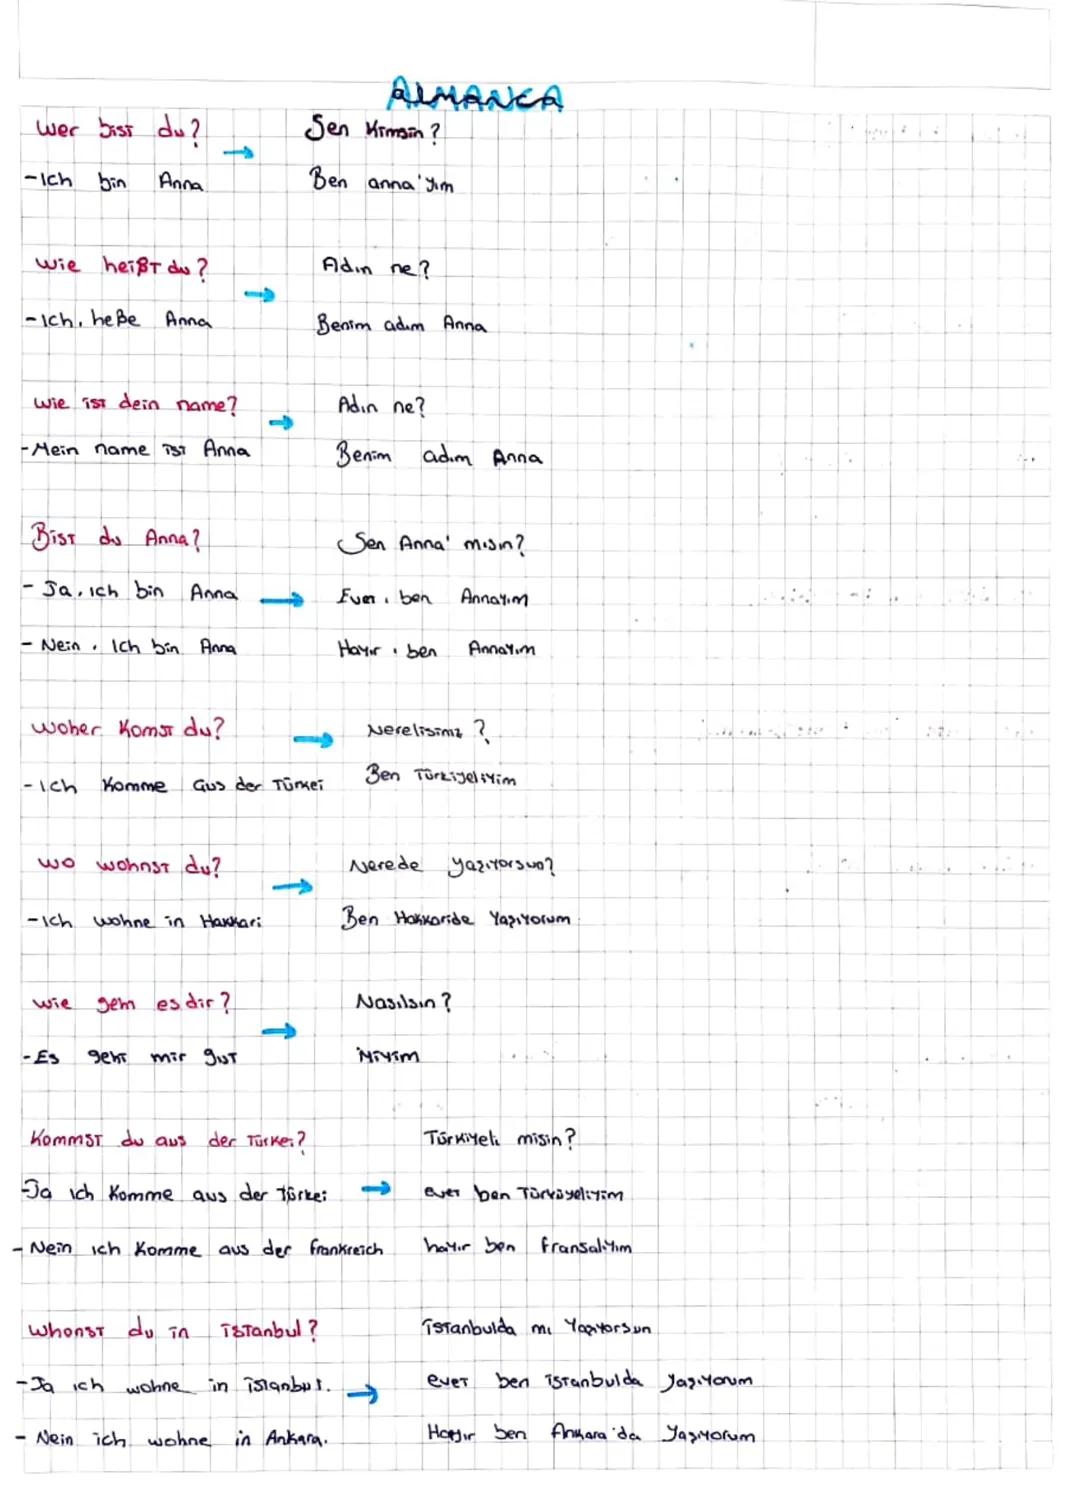 ALMANCA
Wer bist du? → Sen Kimsin?
-Ich bin Anna Ben anna'yım
Wie heißt du? → Adın ne?
-Ich, heße Anna Benim adım Anna
Wie ist dein name? → Adın ne?
-Mein name ist Anna Benim adım Anna
Bist du Anna? Sen Anna' mısın?
- Ja, ich bin Anna → Evet, ben Annayım
- Nein, Ich bin Anna Hayır, ben Annayım
Woher Komst du? → Nerelisiniz?
-Ich Komme aus der Türkei Ben Türkiyeliyim
Wo wohnst du? → Nerede yaşıyorsun?
-Ich wohne in Hakkari Ben Hakkaride Yaşıyorum
Wie es dir? → Nasılsın?
-Es geht mir gut iyiyim
Kommst du aus der Türkei? Türkiyeli misin?
-Ja ich Komme aus der Türkei → evet ben Türkiyeliyim
- Nein ich Komme aus der frankreich hayır ben fransalıyım
Whonst du in istanbul? istanbulda mı Yaşıyorsun
-Ja ich wohne in istanbul. → evet ben istanbulda Yaşıyorum
- Nein ich wohne in Ankara. Hayır ben Ankara'da Yaşıyorum